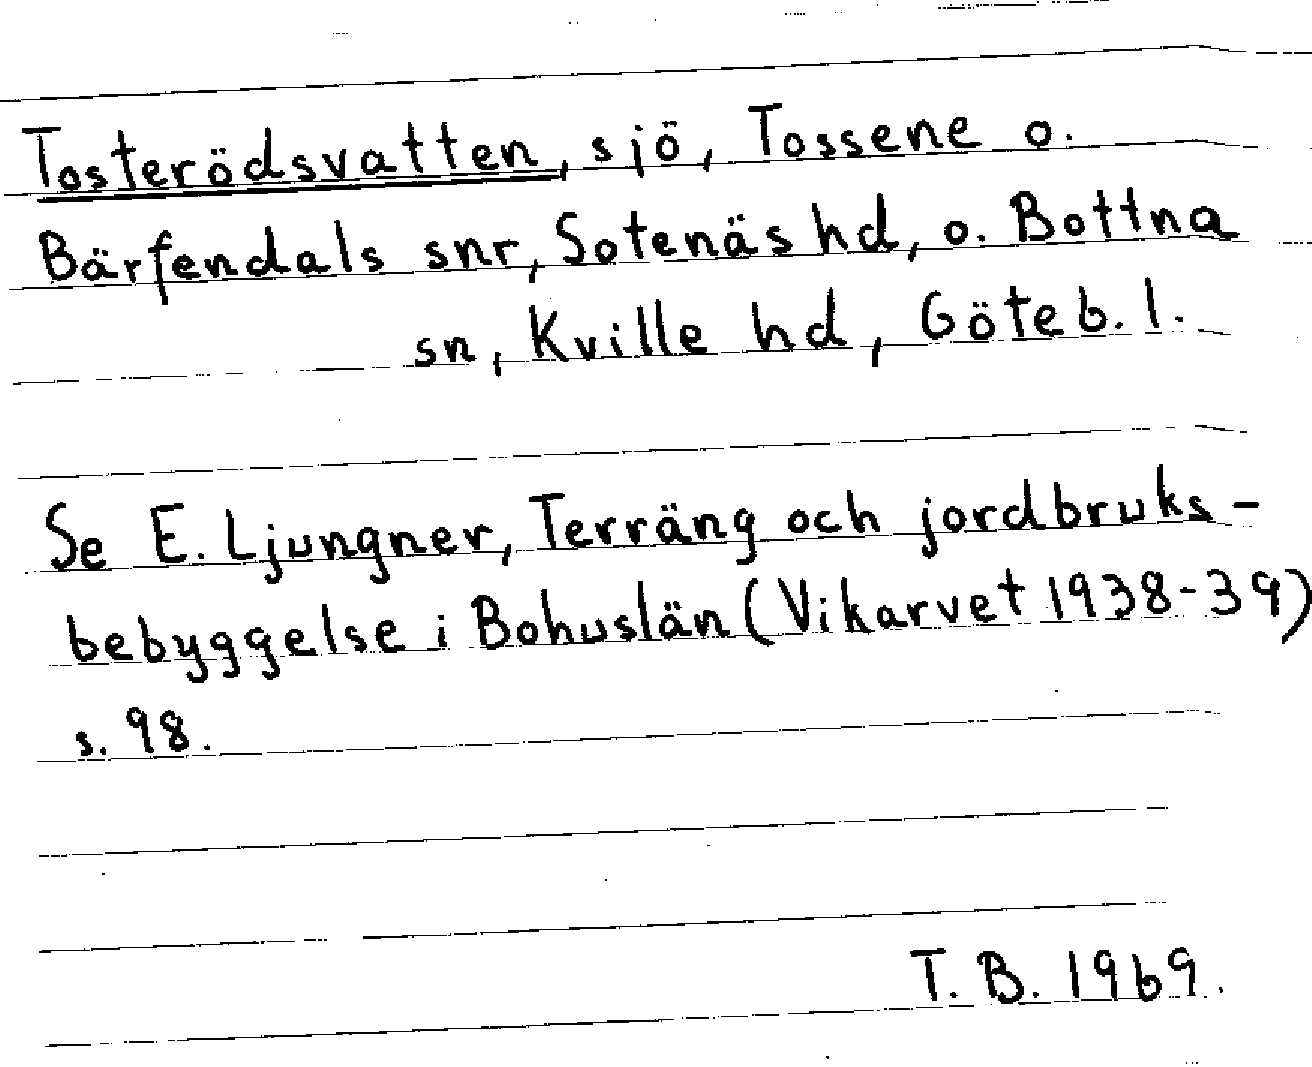 Tosterödsvatten, sjö, Tossene o.
Bärfendals snr, Sotenäs hd, o. Bottna
sn, Kville hd, Göteb. l.
Se E. Ljungner, Terräng och jordbruks-
bebyggelse i Bohuslän (Vikarvet 1938-39)
s. 98.
T. B. 1969.